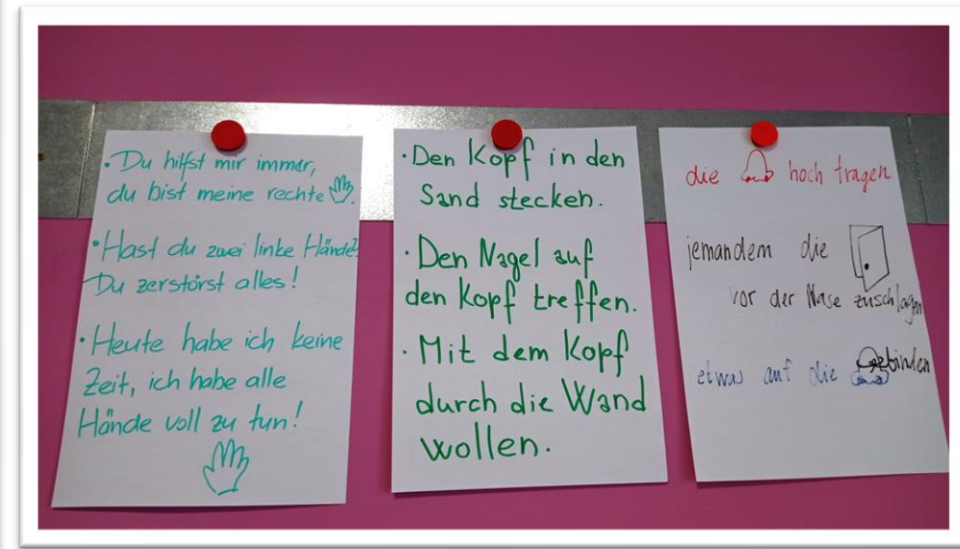 · Du hilfst mir immer,
du bist meine rechte
· Hast du zwei linke Hände?
Du zerstörst alles!
· Heute habe ich keine
Zeit, ich habe alle
Hände voll zu tun!
· Den Kopf in den
Sand stecken.
· Den Nagel auf
den Kopf treffen.
· Mit dem Kopf
durch die Wand
wollen.
die hoch tragen
jemandem die
vor der Nase zuschlagen
etwas auf die binden